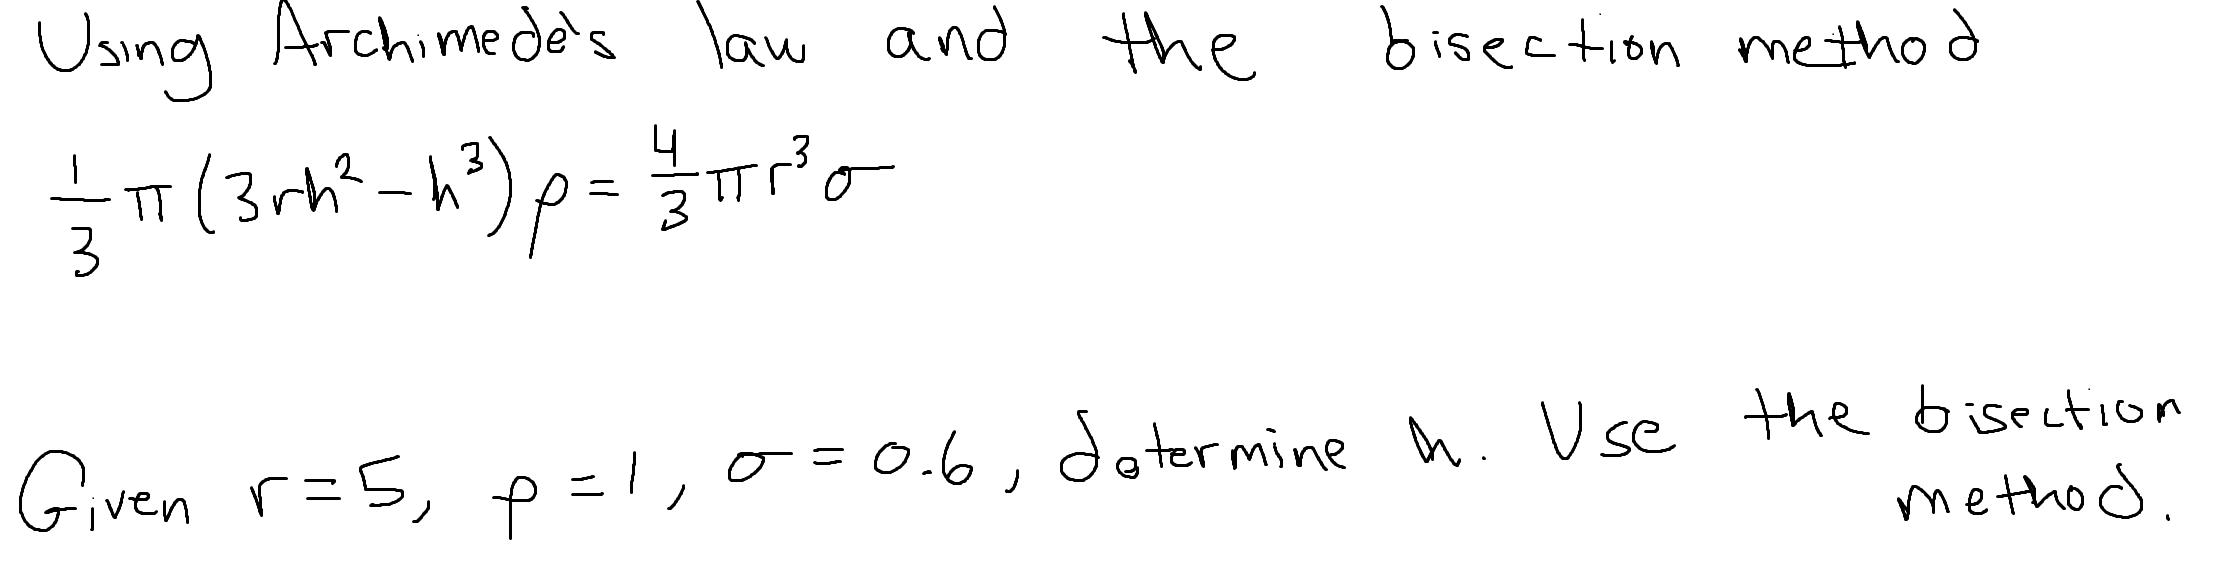 Using Archimede's law and the bisection method
1/3 π (3rh² - h³) ρ = 4/3 π r³ σ
Given r = 5, ρ = 1, σ = 0.6, determine h. Use the bisection
method.